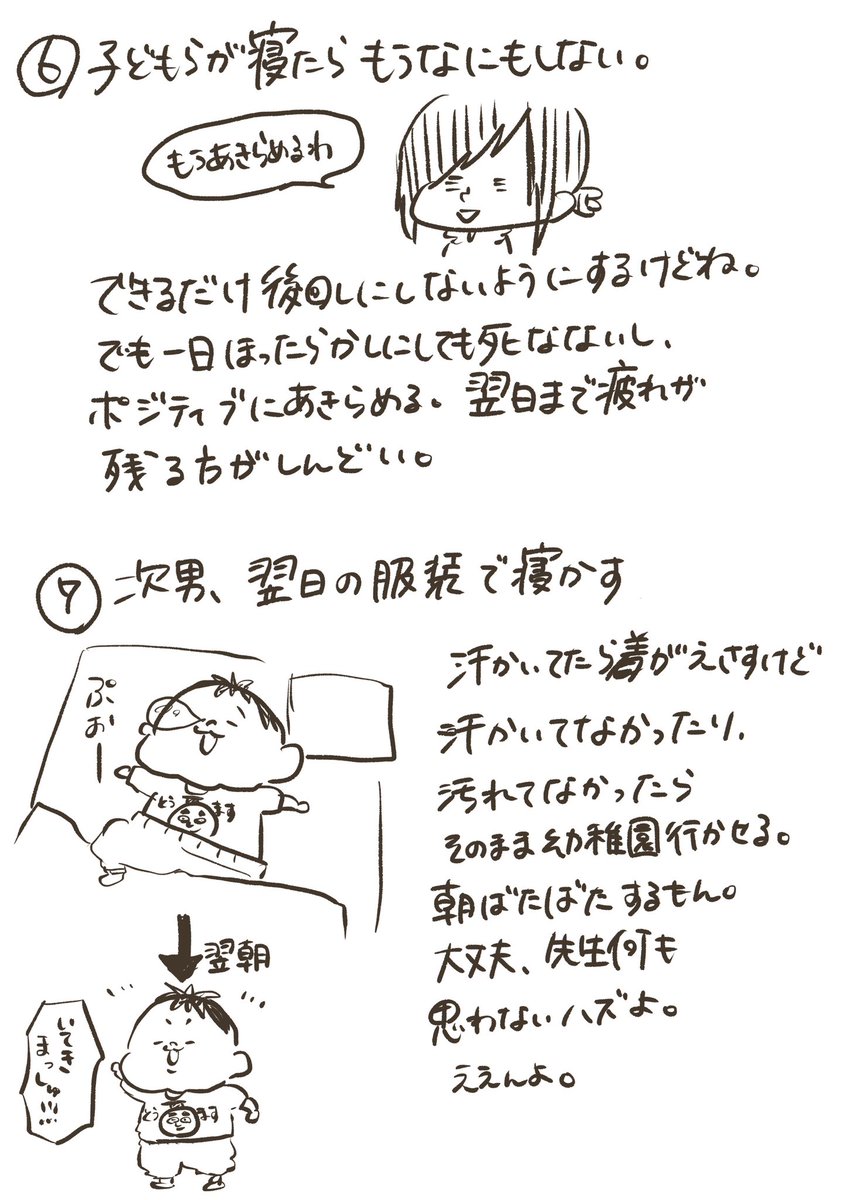 ⑥子どもらが寝たらもうなにもしない。
もうあきらめるわ
できるだけ後回しにしないようにするけどね。
でも一日ほったらかしにしても死なないし、
ポジティブにあきらめる。翌日まで疲れが
残る方がしんどい。
⑦次男、翌日の服装で寝かす
ぷおー
どう ます
汗かいてたら着がえさすけど
汗かいてなかったり、
汚れてなかったら
そのまま幼稚園行かせる。
朝ばたばたするもん。
大丈夫、先生何も
思わないハズよ。
ええんよ。
翌朝
いてき
まっしゅ!!!
どう ます